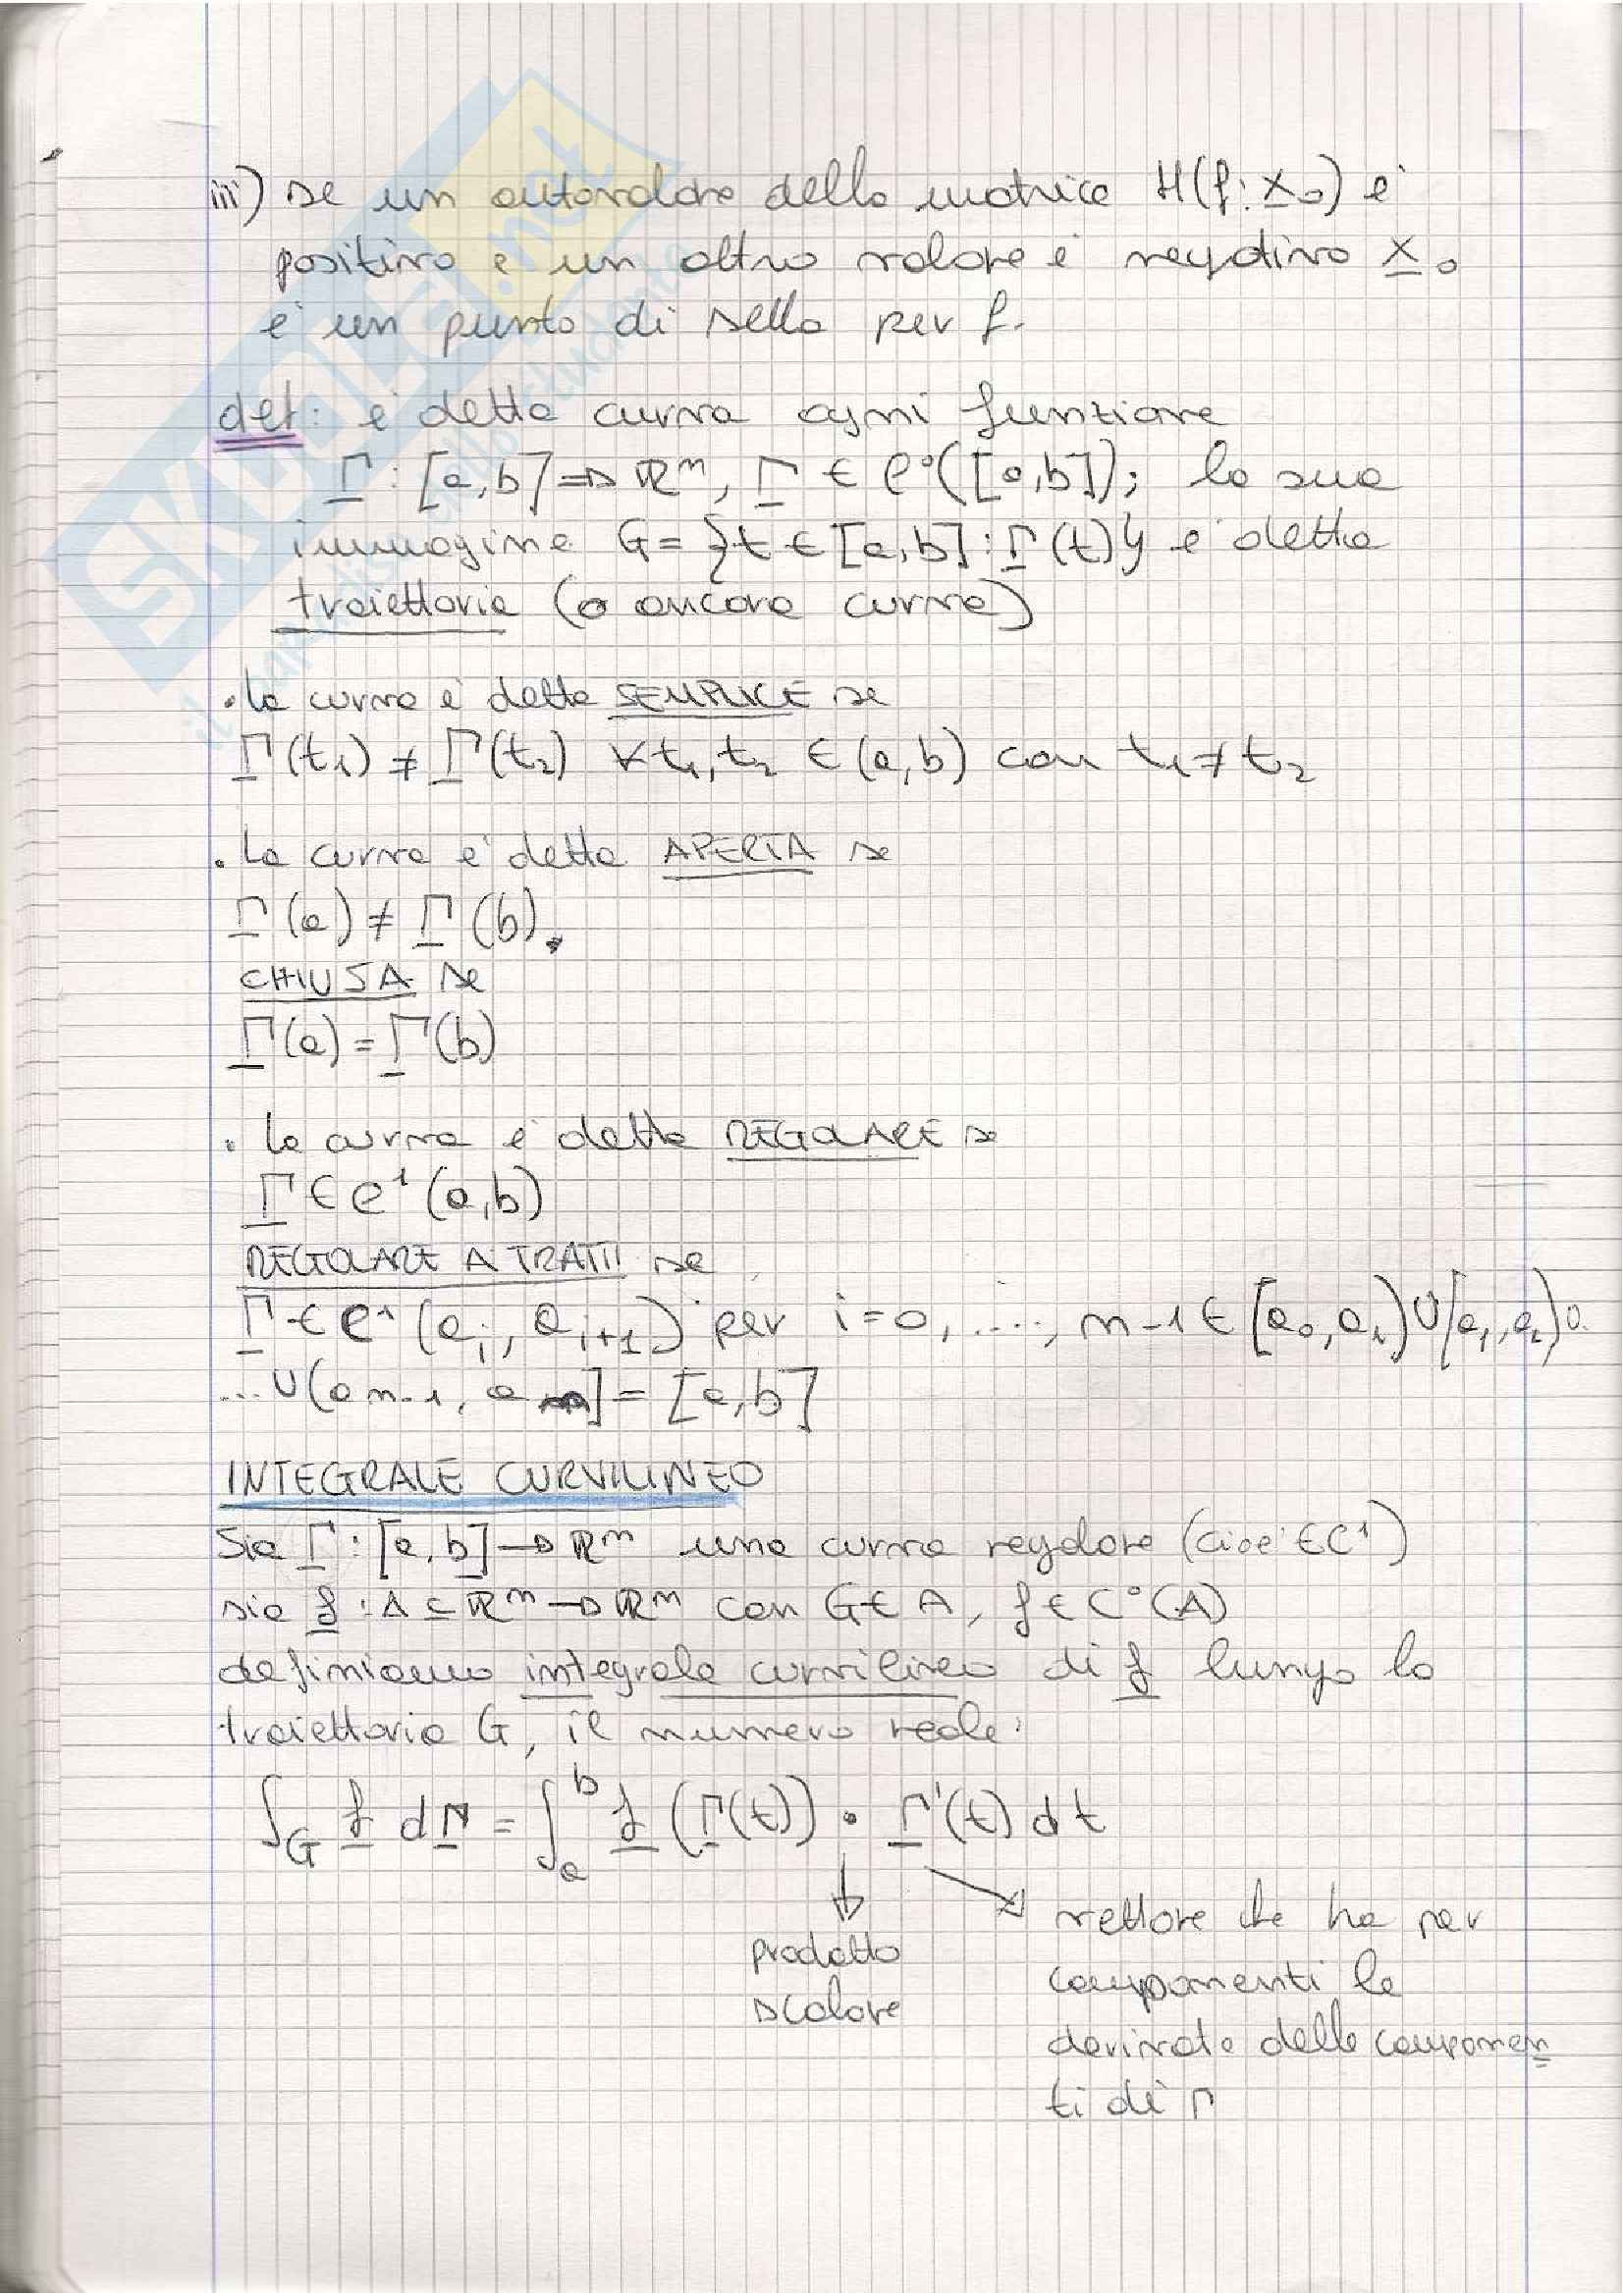 iii) se un autovalore della matrice H(f: x̲₀) è
positivo e un altro valore è negativo x̲₀
è un punto di sella per f.
def: è detta curva ogni funzione
Γ̲ : [a,b] → ℝⁿ, Γ̲ ∈ C⁰([a,b]); la sua
immagine G = {t ∈ [a,b] : Γ̲(t)} è detta
traiettoria (o ancora curva)
. la curva è detta SEMPLICE se
Γ̲(t₁) ≠ Γ̲(t₂) ∀t₁,t₂ ∈ (a,b) con t₁ ≠ t₂
. La curva è detta APERTA se
Γ̲(a) ≠ Γ̲(b).
CHIUSA se
Γ̲(a) = Γ̲(b)
. la curva è detta REGOLARE se
Γ̲ ∈ C¹(a,b)
REGOLARE A TRATTI se
Γ̲ ∈ C¹(aᵢ, aᵢ₊₁) per i=0, ...., n-1 ∈ [a₀,a₁) ∪ [a₁,a₂) ∪
... ∪ (a n-1, a n] = [a,b]
INTEGRALE CURVILINEO
Sia Γ̲ : [a,b] → ℝⁿ una curva regolare (cioè ∈ C¹)
sia f̲ : A ⊆ ℝⁿ → ℝⁿ con G ∈ A, f ∈ C⁰(A)
definiamo integrale curvilineo di f̲ lungo la
traiettoria G, il numero reale:
∫_G f̲ dΓ̲ = ∫ₐᵇ f̲(Γ̲(t)) · Γ̲'(t) dt
prodotto
scalare
vettore che ha per
componenti le
derivate delle componen
ti di Γ
SKUOLA.net